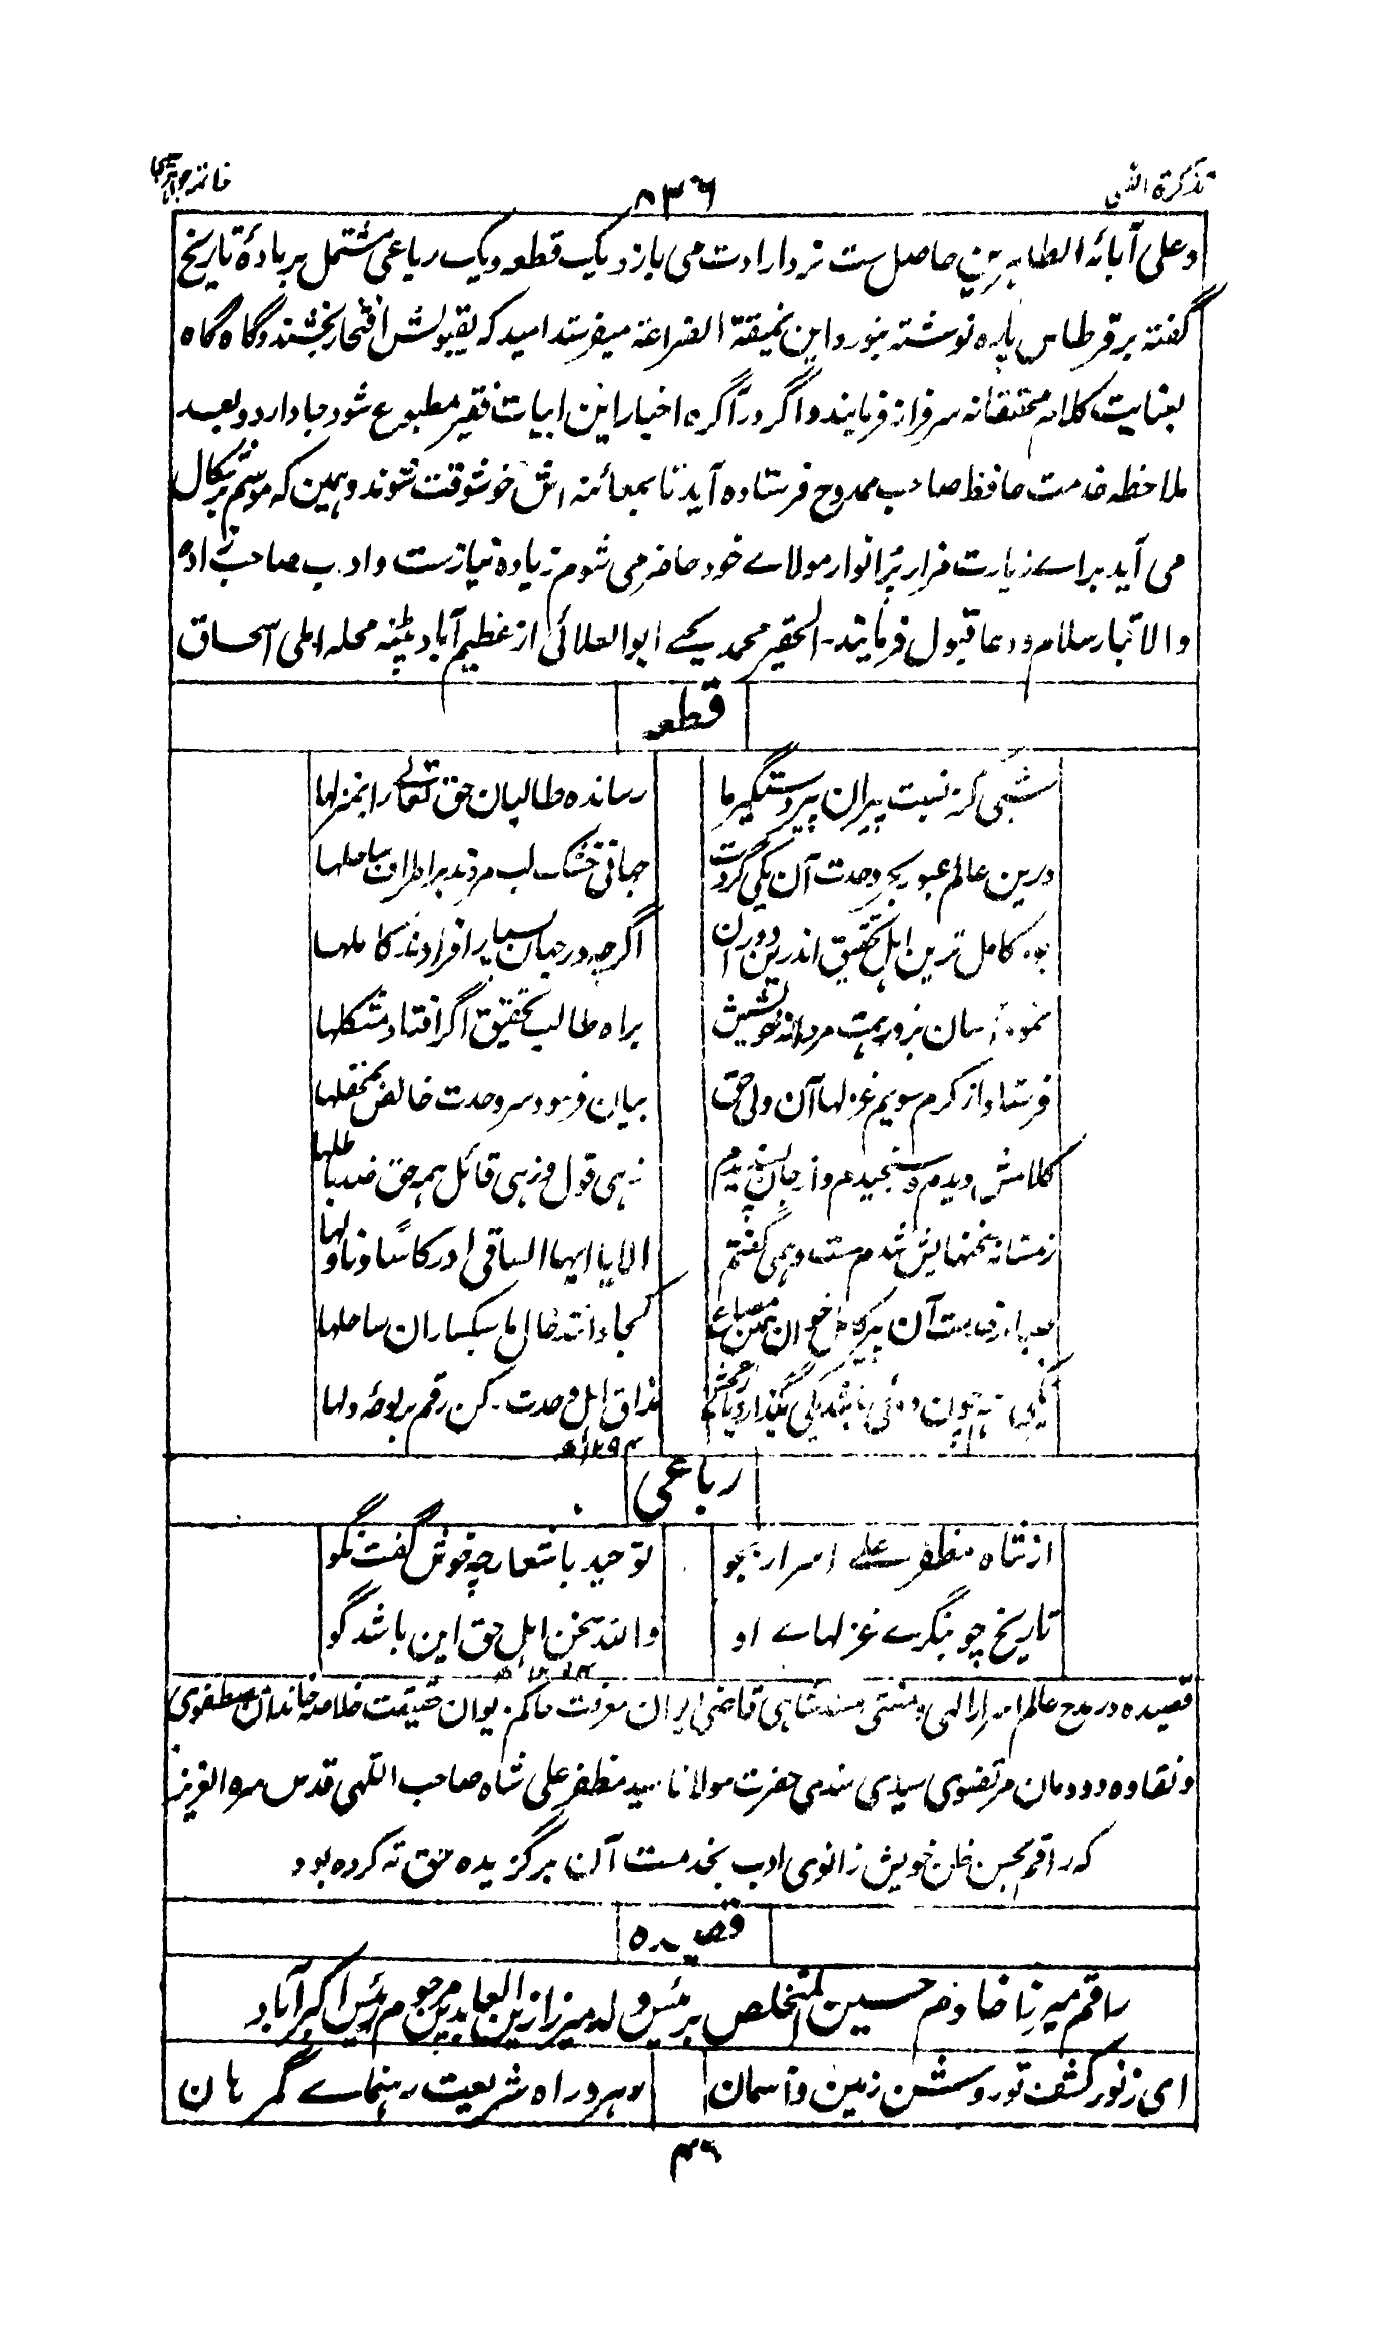 تذکرة اللہی
۸۳۶
خاتمہ جواہر غیبی
وعلی آبائه الطاہرین حاصل ست نرد ارادت می بازد ویک قطعہ ویک رباعی مشتمل بر مادۂ تاریخ
گفتہ بر قرطاس پارہ نوشتہ بنورد این نمیقة الضراعة میفرستد امید کہ بقبولش افتخار بخشند وگاہ گاہ
بعنایت کلامہ محققانہ سرفراز فرمایند واگر در آگرہ اخبار این ابیات فقیر مطبوع شود جا دارد وبعد
ملاحظہ خدمت حافظ صاحب ممدوح فرستادہ آید تا بمعائنہ اش خوشوقت شوند وہمین کہ موسم برشکال
می آید براے زیارت مزار پر انوار مولاے خود حاضر می شوم زیادہ نیازست وادب صاحب زادہ
والا تبار سلام ودعا قبول فرمایند۔ الحقیر محمد یحیے ابوالعلائی از عظیم آباد پٹنہ محلہ املی اسحاق
قطعہ
شہی کز نسبت پیران پیر دستگیر ما
رساندہ طالبان حق تعالے را بمنزلہا
درین عالم عبور بحر وحدت آن یکی کردست
جہانی خشک لب مردند بر اطراف ساحلہا
بود کامل ترین اہل تحقیق اندرین دوران
اگرچہ در جہان بسیار افرادند کاملہا
نمودہ آسان بزور ہمت مردانہ خویشش
براہ طالب تحقیق اگر افتاد مشکلہا
فرستاد از کرم سویم غزلہا آن ولی حق
بیان فرمود سر وحدت خالص بمحفلہا
کلامش دیدم وسنجیدم واز جان پسندیدم
زہی قول وزہی قائل ہمہ حق ضد باطلہا
زمستانہ سخنہایش شدم مست وہمی گفتم
الا یا ایہا الساقی ادر کاسًا وناولہا
کجا دانند حال ما سبکساران ساحلہا
مذاق اہل وحدت کن رقم بر لوحۂ دلہا
۱۲۹۳ھ
رباعی
از شاہ مظفر علے اسرار بجو
توحید باشعار چہ خوش گفت نگو
تاریخ چو بنگرے غزلہاے او
واللہ سخن اہل حق این باشد گو
قصیدہ در مدح عالم اسرار الہی ومفتی مسند شاہی قاضی ایران معرفت حاکم دیوان حقیقت خلاصہ خاندان مصطفوی
ونقاوہ دودمان مرتضوی سیدی سندی حضرت مولانا سید مظفر علی شاہ صاحب اللہی قدس سرہ العزیز
کہ راقم بحسن ظن خویش زانوی ادب بخدمت آن برگزیدہ حق تہ کردہ بود
قصیدہ
راقم میرزا خادم حسین المتخلص برئیس ولد میرزا زین العابدین مرحوم رئیس اکبرآباد
ای ز نور کشف تو روشن زمین وآسمان
رہبر دراہ شریعت رہنماے گمرہان
۴۶